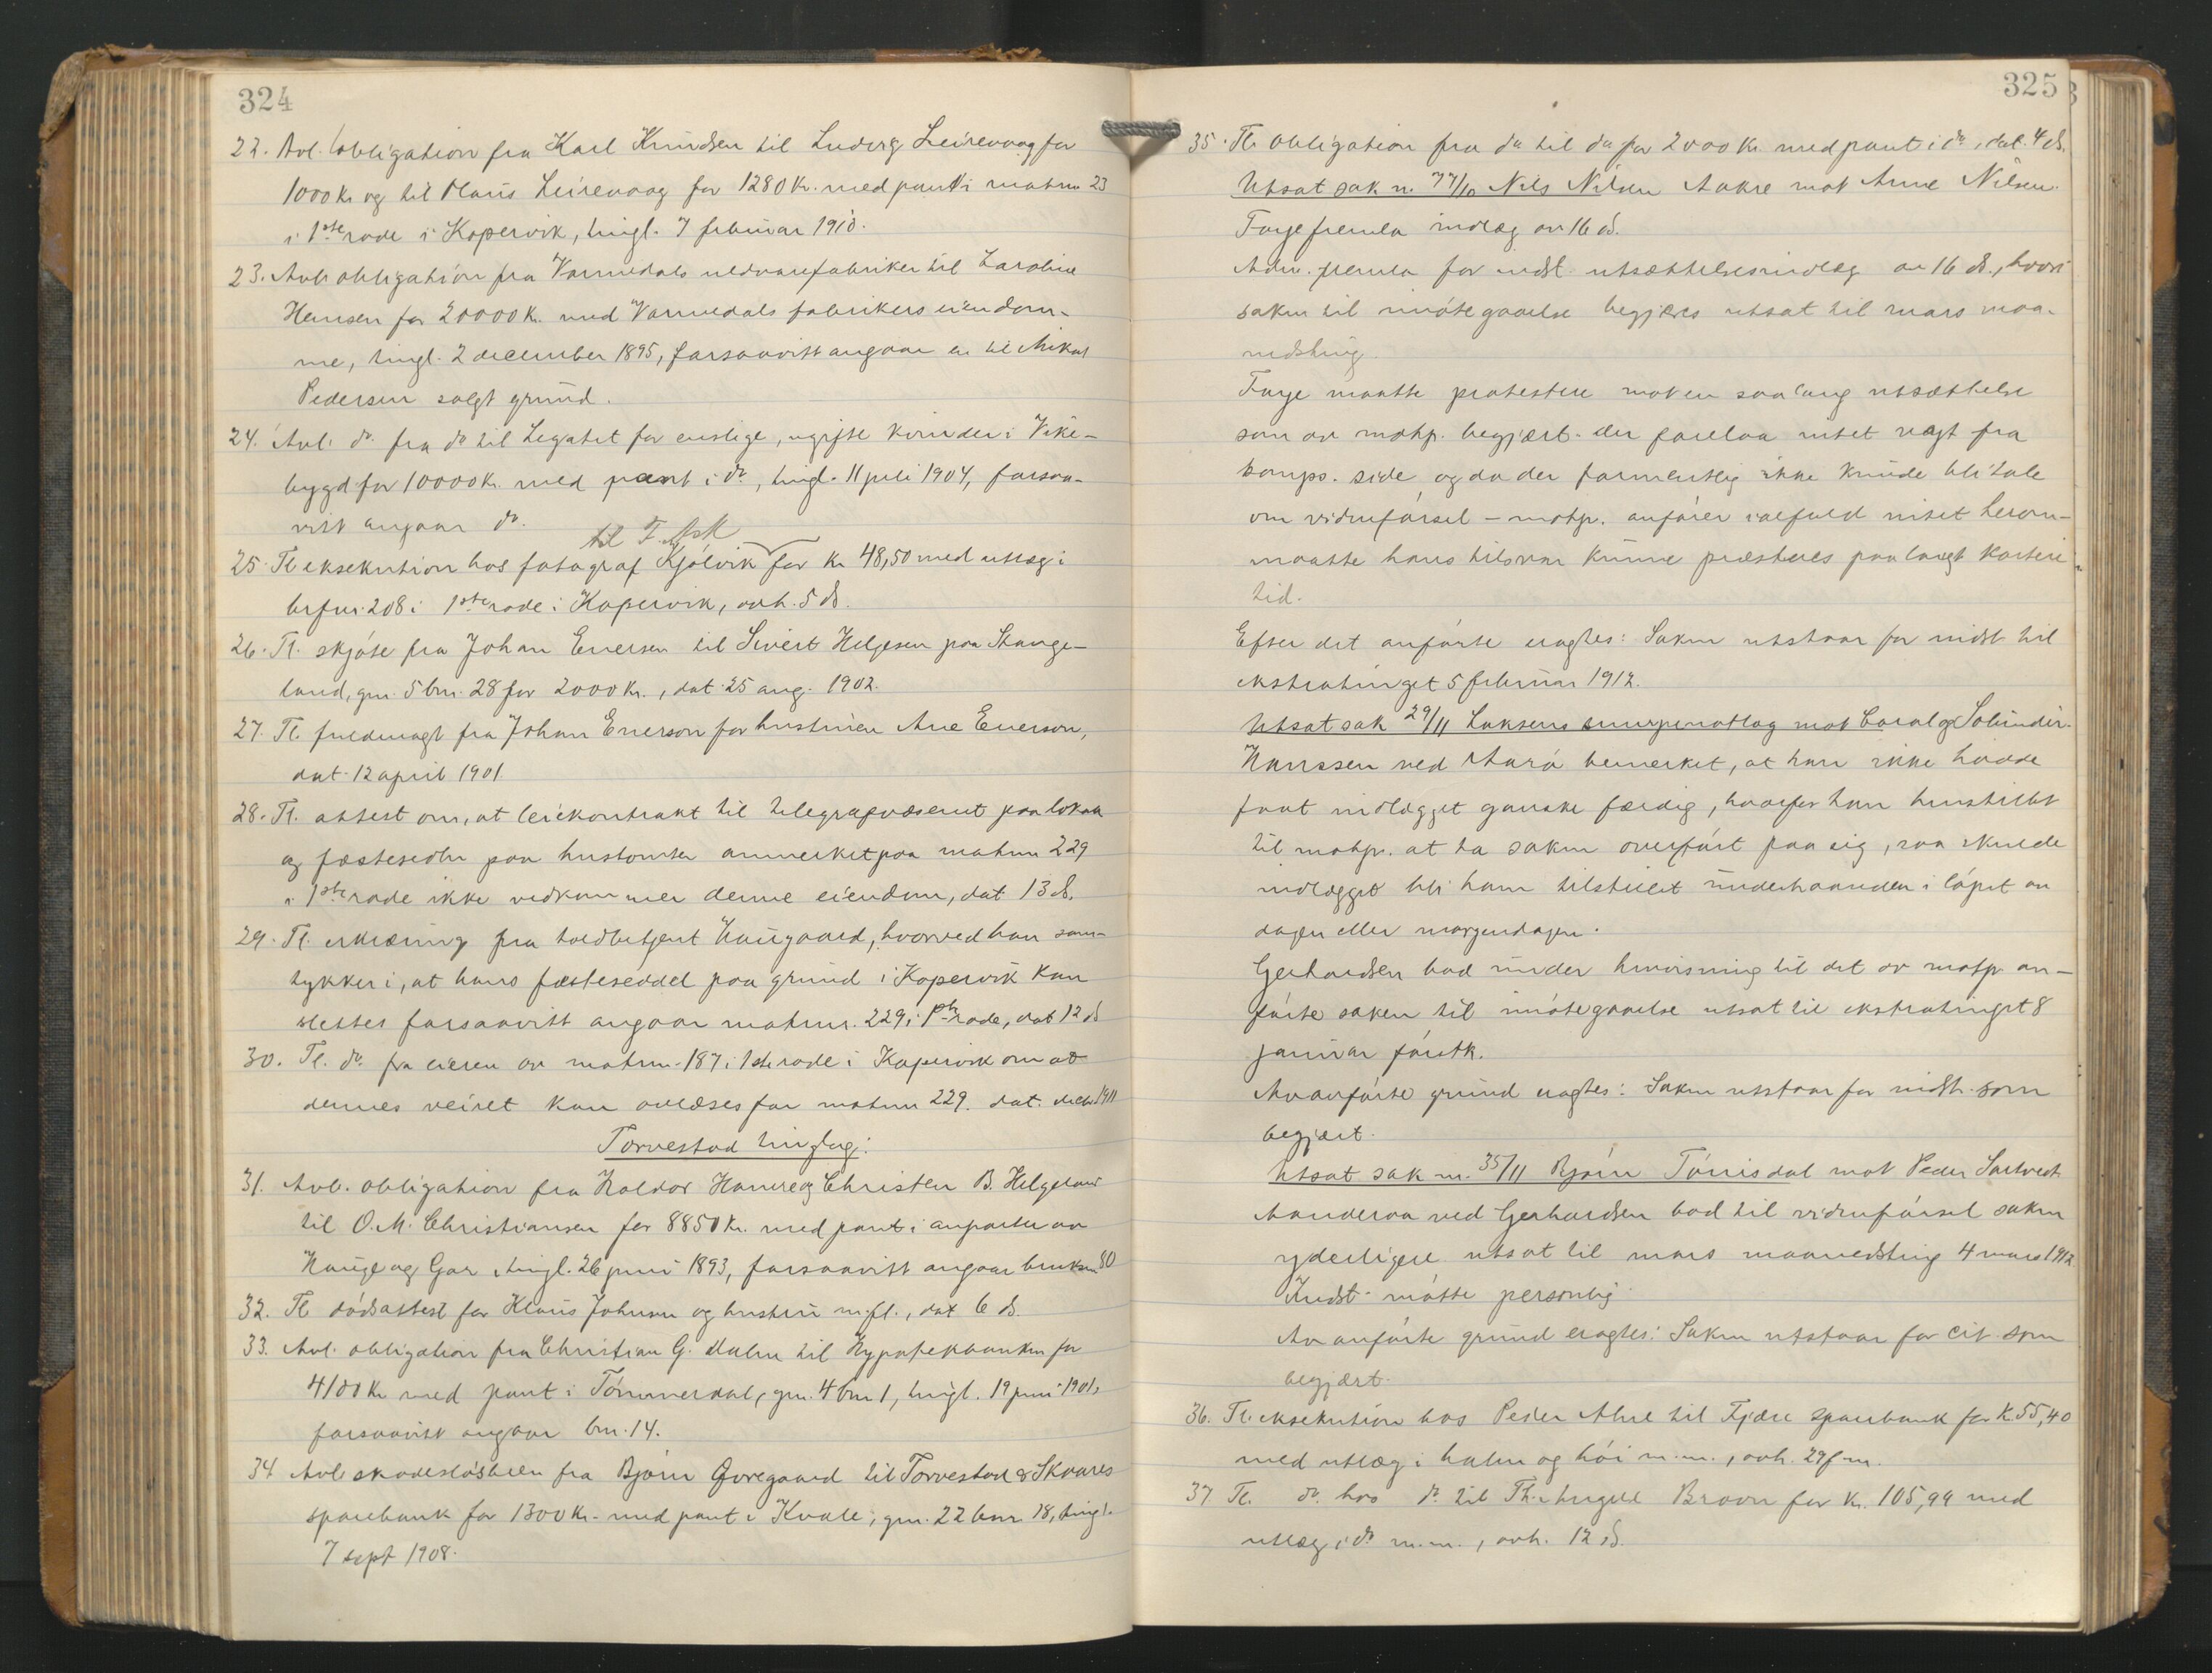 324
22. Avl. obligation fra Karl Knudsen til Ludvig Leirevaag for
1000 kr og til Claus Leirevaag for 1280 kr. med pant i matrnr 23
i 1ste rode i Kopervik, tingl. 7 februar 1910.
23. Avl. obligation fra Vormedals uldvarefabriker til Karoline
Hansen for 20000 kr. med Vormedals fabrikers eiendom-
me, tingl. 2 december 1895, forsaavitt angaar en til Mikal
Pedersen solgt grund.
24. Avl. do. fra do til Legatet for enslige, ugifte kvinder i Vike-
bygd for 10000 kr. med pant i do, tingl. 11 juli 1904, forsaa-
vitt angaar do.
til T. Ask
25. Tl eksekution hos fotograf Kjölvik for kr 48,50 med utlæg i
brfnr. 208 i 1ste rode i Kopervik, avh. 5 ds.
26. Tl. skjöte fra Johan Enersen til Sivert Helgesen paa Stange-
land, gnr. 5 bnr. 28 for 2000 kr., dat. 25 aug. 1902.
27. Tl. fuldmagt fra Johan Enerson for hustruen Ane Enerson,
dat. 12 april 1901.
28. Tl. attest om, at leiekontrakt til telegrafvæsenet paa lokale
og fæstesedler paa hustomter anmerket paa matrnr 229
i 1ste rode ikke vedkommer denne eiendom, dat 13 ds.
29. Tl. erklæring fra toldbetjent Haugaard, hvorved han sam-
tykker i, at hans fæsteseddel paa grund i Kopervik kan
slettes forsaavitt angaar matrnr. 229 i 1ste rode, dat 12 ds
30. Tl. do. fra eieren av matrnr. 187 i 1ste rode i Kopervik om at
dennes veiret kan avlæses for matrnr 229. dat. decbr 1911
Torvestad tinglag:
31. Avl. obligation fra Haldor Hauge og Christen B. Helgeland
til O. M. Christiansen for 8850 kr. med pant i anparter av
Hauge og Gar tingl. 26 juni 1893, forsaavitt angaar bruksnr 80
32. Tl dödsattest for Klaus Johnsen og hustru m.fl., dat 6 ds.
33. Avl. obligation fra Christian G. Malm til Hypotekbanken for
4100 kr med pant i Tömmerdal, gnr. 4 bnr 1, tingl. 19 juni 1901,
forsaavitt angaar bnr. 14.
34 Avl. skadeslösbrev fra Bjørn Øvregaard til Torvestad & Skaares
sparebank for 1300 kr. med pant i Kvale, gnr. 22 bnr 18, tingl.
7 sept 1908.
325
35. Tl. obligation fra do til do for 2000 kr. med pant i do, dat. 4 ds.
Utsat sak nr. 77/10 Nils Nilsen Aakre mot Anne Nilsen.
Farge fremla indlæg av 16 ds.
Adv. fremla for indst. utsættelsesindlæg av 16 ds., hvori
saken til imötegaaelse begjæres utsat til mars maa-
nedsting
Farge maatte protestere mot en saa lang utsættelse
som av motp. begjært. der forelaa intet nyt fra
komps. side, og da der formentlig ikke kunde bli tale
om vidneförsel – motp. anförer ialfald intet herom –
maatte hans tilsvar kunne præsteres paa langt kortere
tid.
Efter det anförte eragtes: Saken utstaar for indst. til
ekstratinget 5 februar 1912.
Utsat sak 29/11 Laksens snurpenotlag mot Carol og Salinder.
Hanssen ved Aarö bemerket, at han ikke hadde
faat indlægget ganske færdig, hvorfor han henstillet
til motp. at ta saken overfört paa sig, saa skulde
indlægget bli ham tilstillet underhaanden i löpet av
dagen eller morgendagen.
Gerhardsen bad under henvisning til det av motp. an-
förte saken til imötegaaelse utsat til ekstratinget 8
januar förstk.
Av anförte grund eragtes: Saken utstaar for indst. som
begjært.
Utsat sak nr. 35/11 Bjørn Törrisdal mot Peder Sartveit
Aanderaa ved Gerhardsen bad til vidneförsel saken
yderligere utsat til mars maanedsting 4 mars 1912
Indst. mötte personlig
Av anförte grund eragtes: Saken utstaar for cit. som
begjært.
36. Tl. eksekution hos Peder Alne til Fjære sparebank for kr. 55,40
med utlæg i halm og höi m.m., avh. 29 f.m.
37 Tl. do. hos do. til Th. Angell Bravn for kr. 105,99 med
utlæg i do m.m., avh. 12 ds.